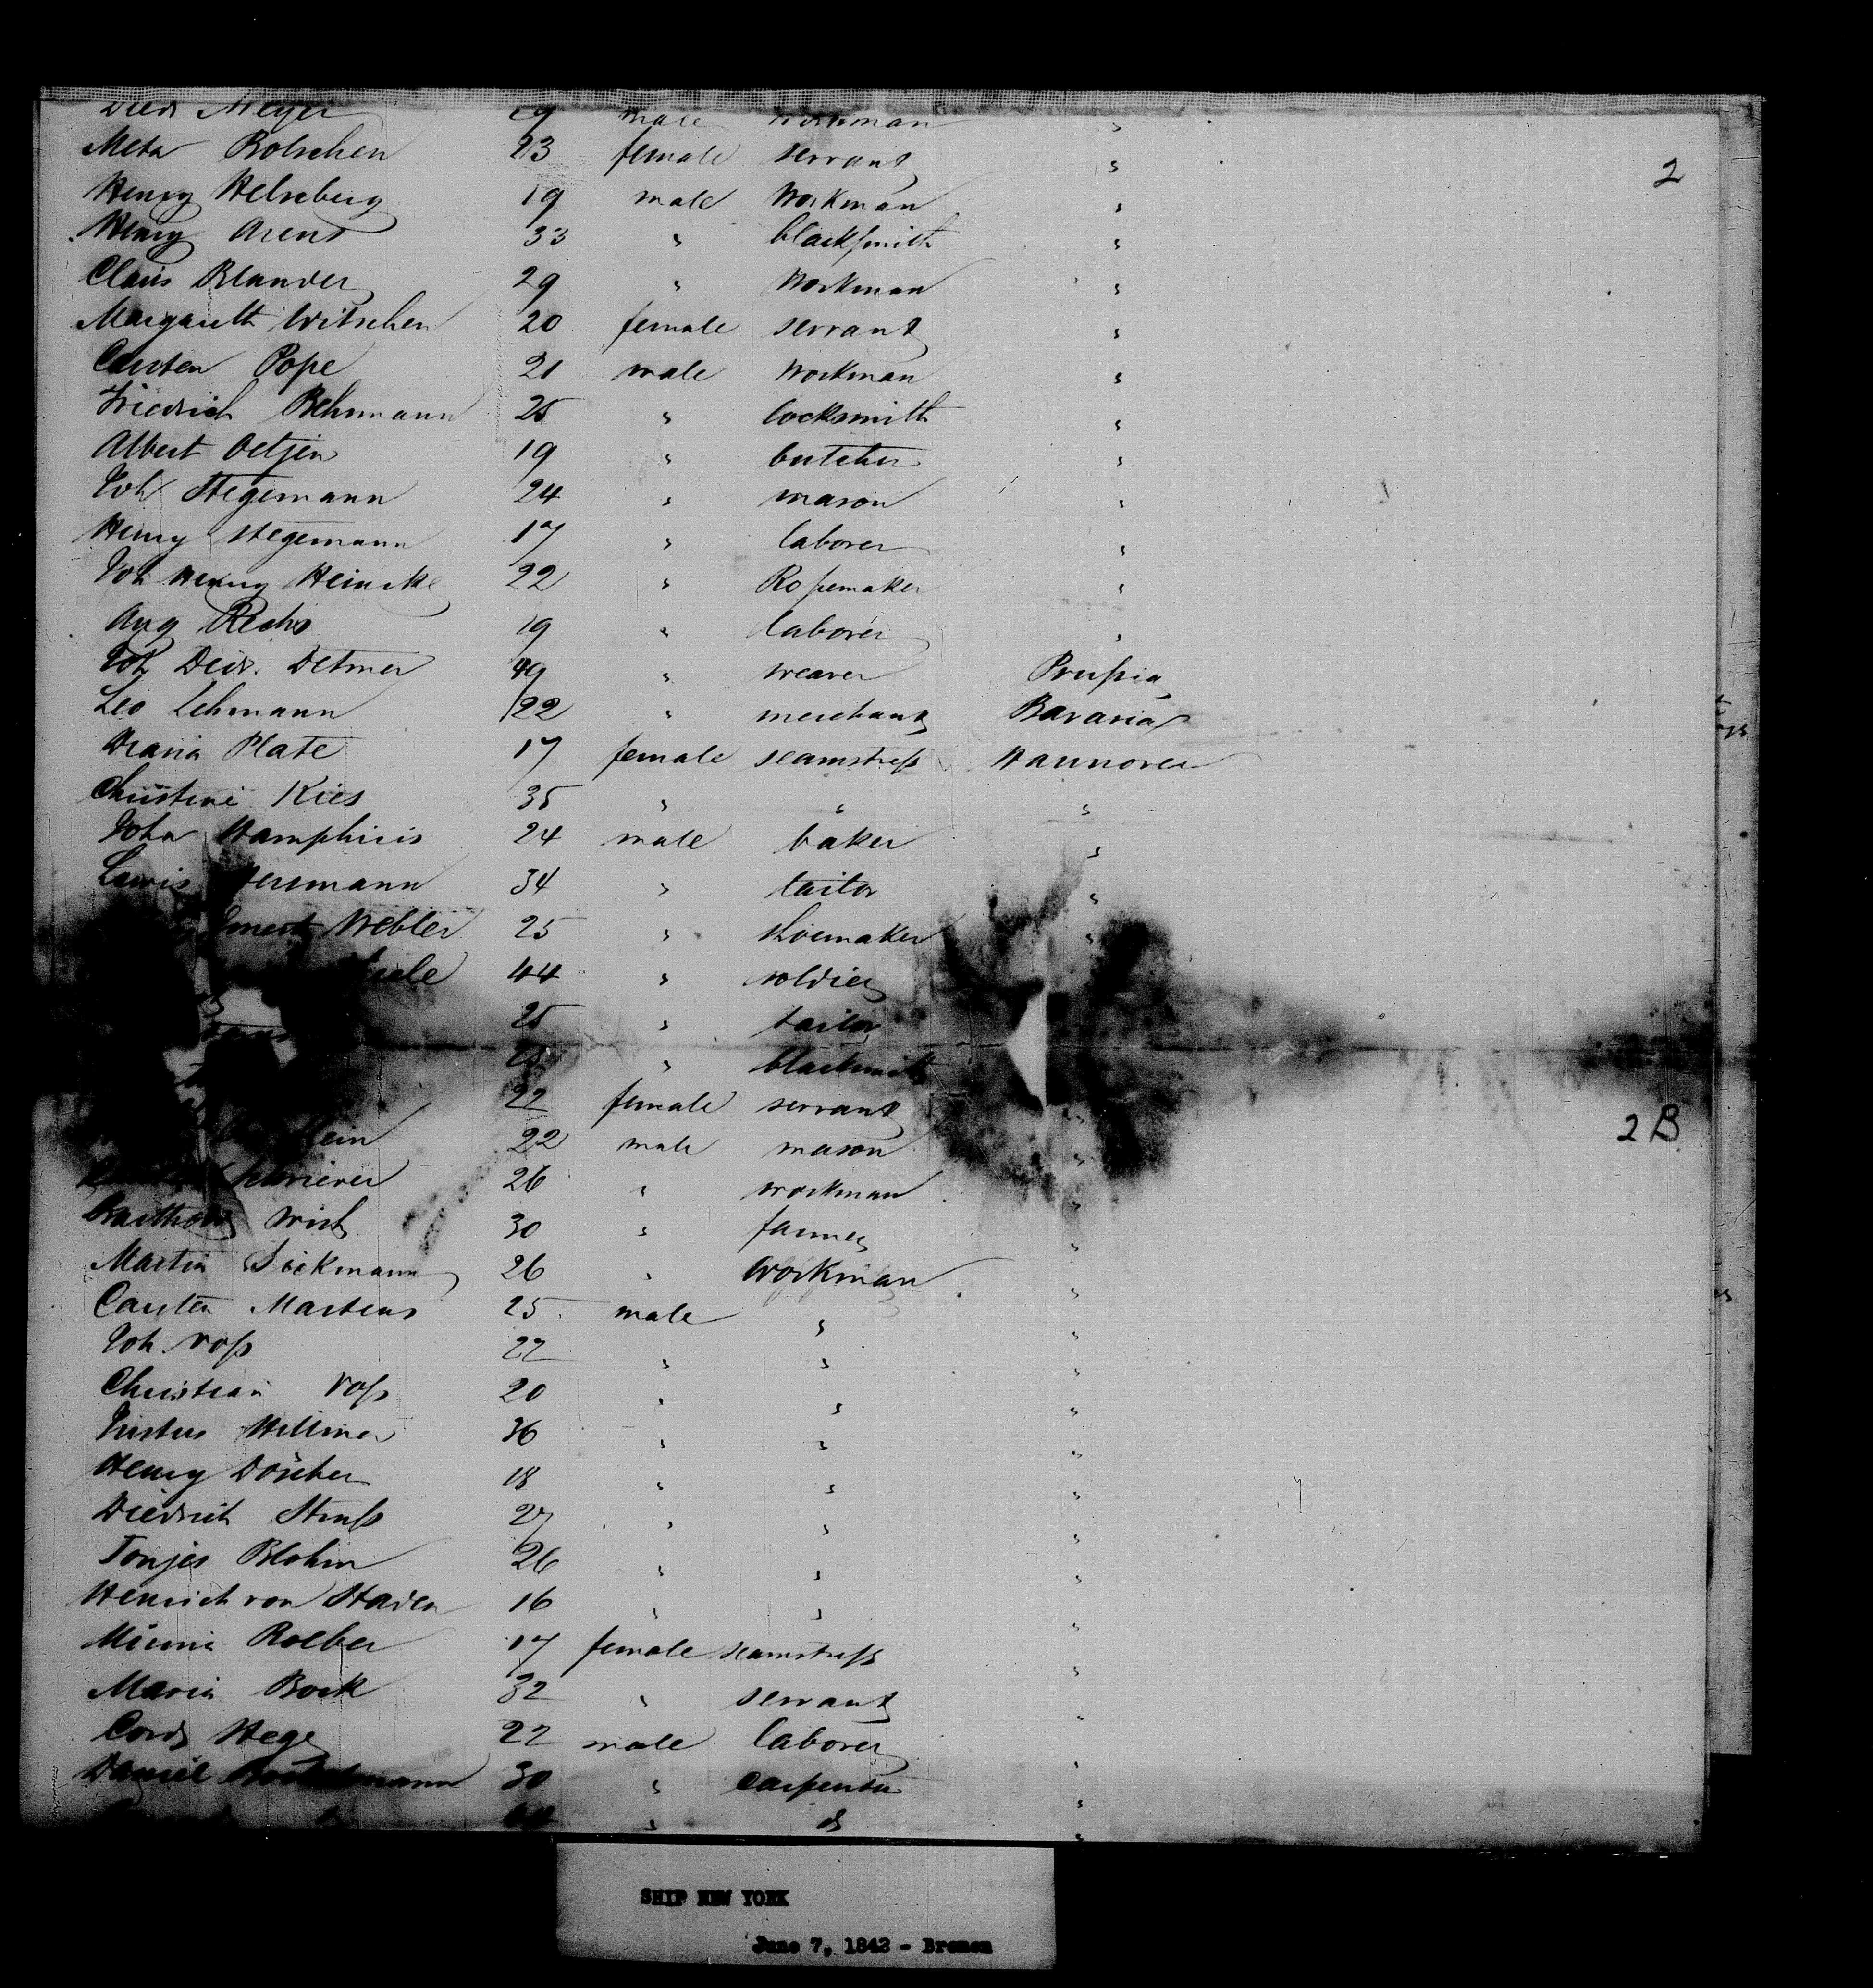 Meyer 29 male workman "
Meta Bolschen 23 female servant "
2
Henry Helseberg 19 male workman "
Henry Arens 33 " blacksmith "
Claus Blander 29 " workman "
Margareth Witschen 20 female servant "
Carsten Pope 21 male workman "
Friedrich Behrmann 25 " locksmith "
Albert Oetjen 19 " butcher "
Joh Stegemann 24 " mason "
Henry Stegemann 17 " laborer "
Joh Henry Heincke 22 " Ropemaker "
Aug 19 " laborer "
Joh Died. Detmer 49 " weaver Prussia
Leo Lehmann 22 " merchant Bavaria
Plate 17 female seamstress Hannover
Christine Kies 35 " " "
John Hamphiris 24 male baker "
Lewis 34 " tailor "
Webler 25 " shoemaker "
44 " soldier
25 " tailor
" blacksmith
22 female servant "
2B
22 male mason "
26 " workman "
30 " farmer "
Martin Siekmann 26 " workman "
Carsten Martens 25 male " "
Joh Voss 22 " " "
Christian Voss 20 " " "
Justus Hillmer 36 " " "
Henry Döscher 18 " " "
Diedrich Struss 27 " " "
Tonjes Blohm 26 " " "
Heinrich von Staden 16 " " "
Roeber 17 female seamstress "
Maria Bock 32 " servant "
Cord Hege 22 male laborer "
Daniel 30 " carpenter "
" do "
SHIP NEW YORK
June 7, 1842 - Bremen